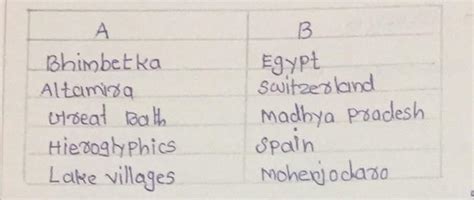 A B
Bhimbetka Egypt
Altamira Switzerland
Great Bath Madhya Pradesh
Hieroglyphics Spain
Lake villages Mohenjodaro